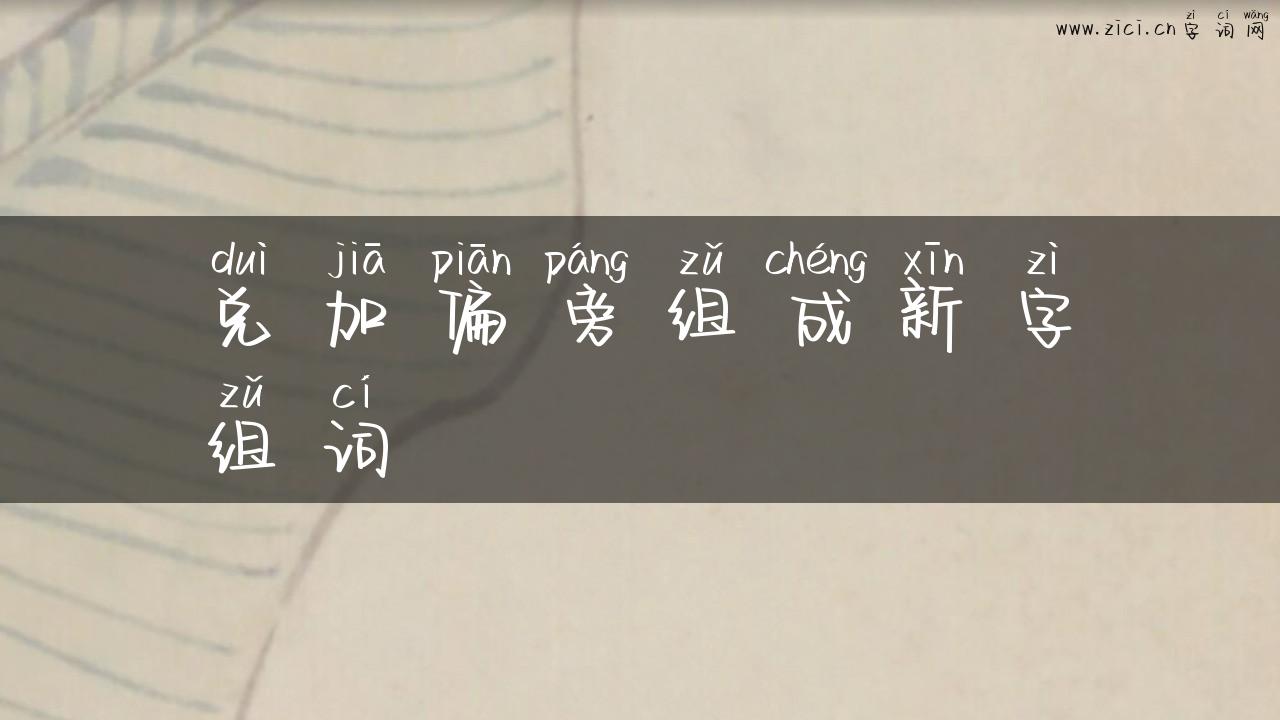 zì cí wǎng
www.zici.cn 字 词 网
duì jiā piān páng zǔ chéng xīn zì
兑 加 偏 旁 组 成 新 字
zǔ cí
组 词